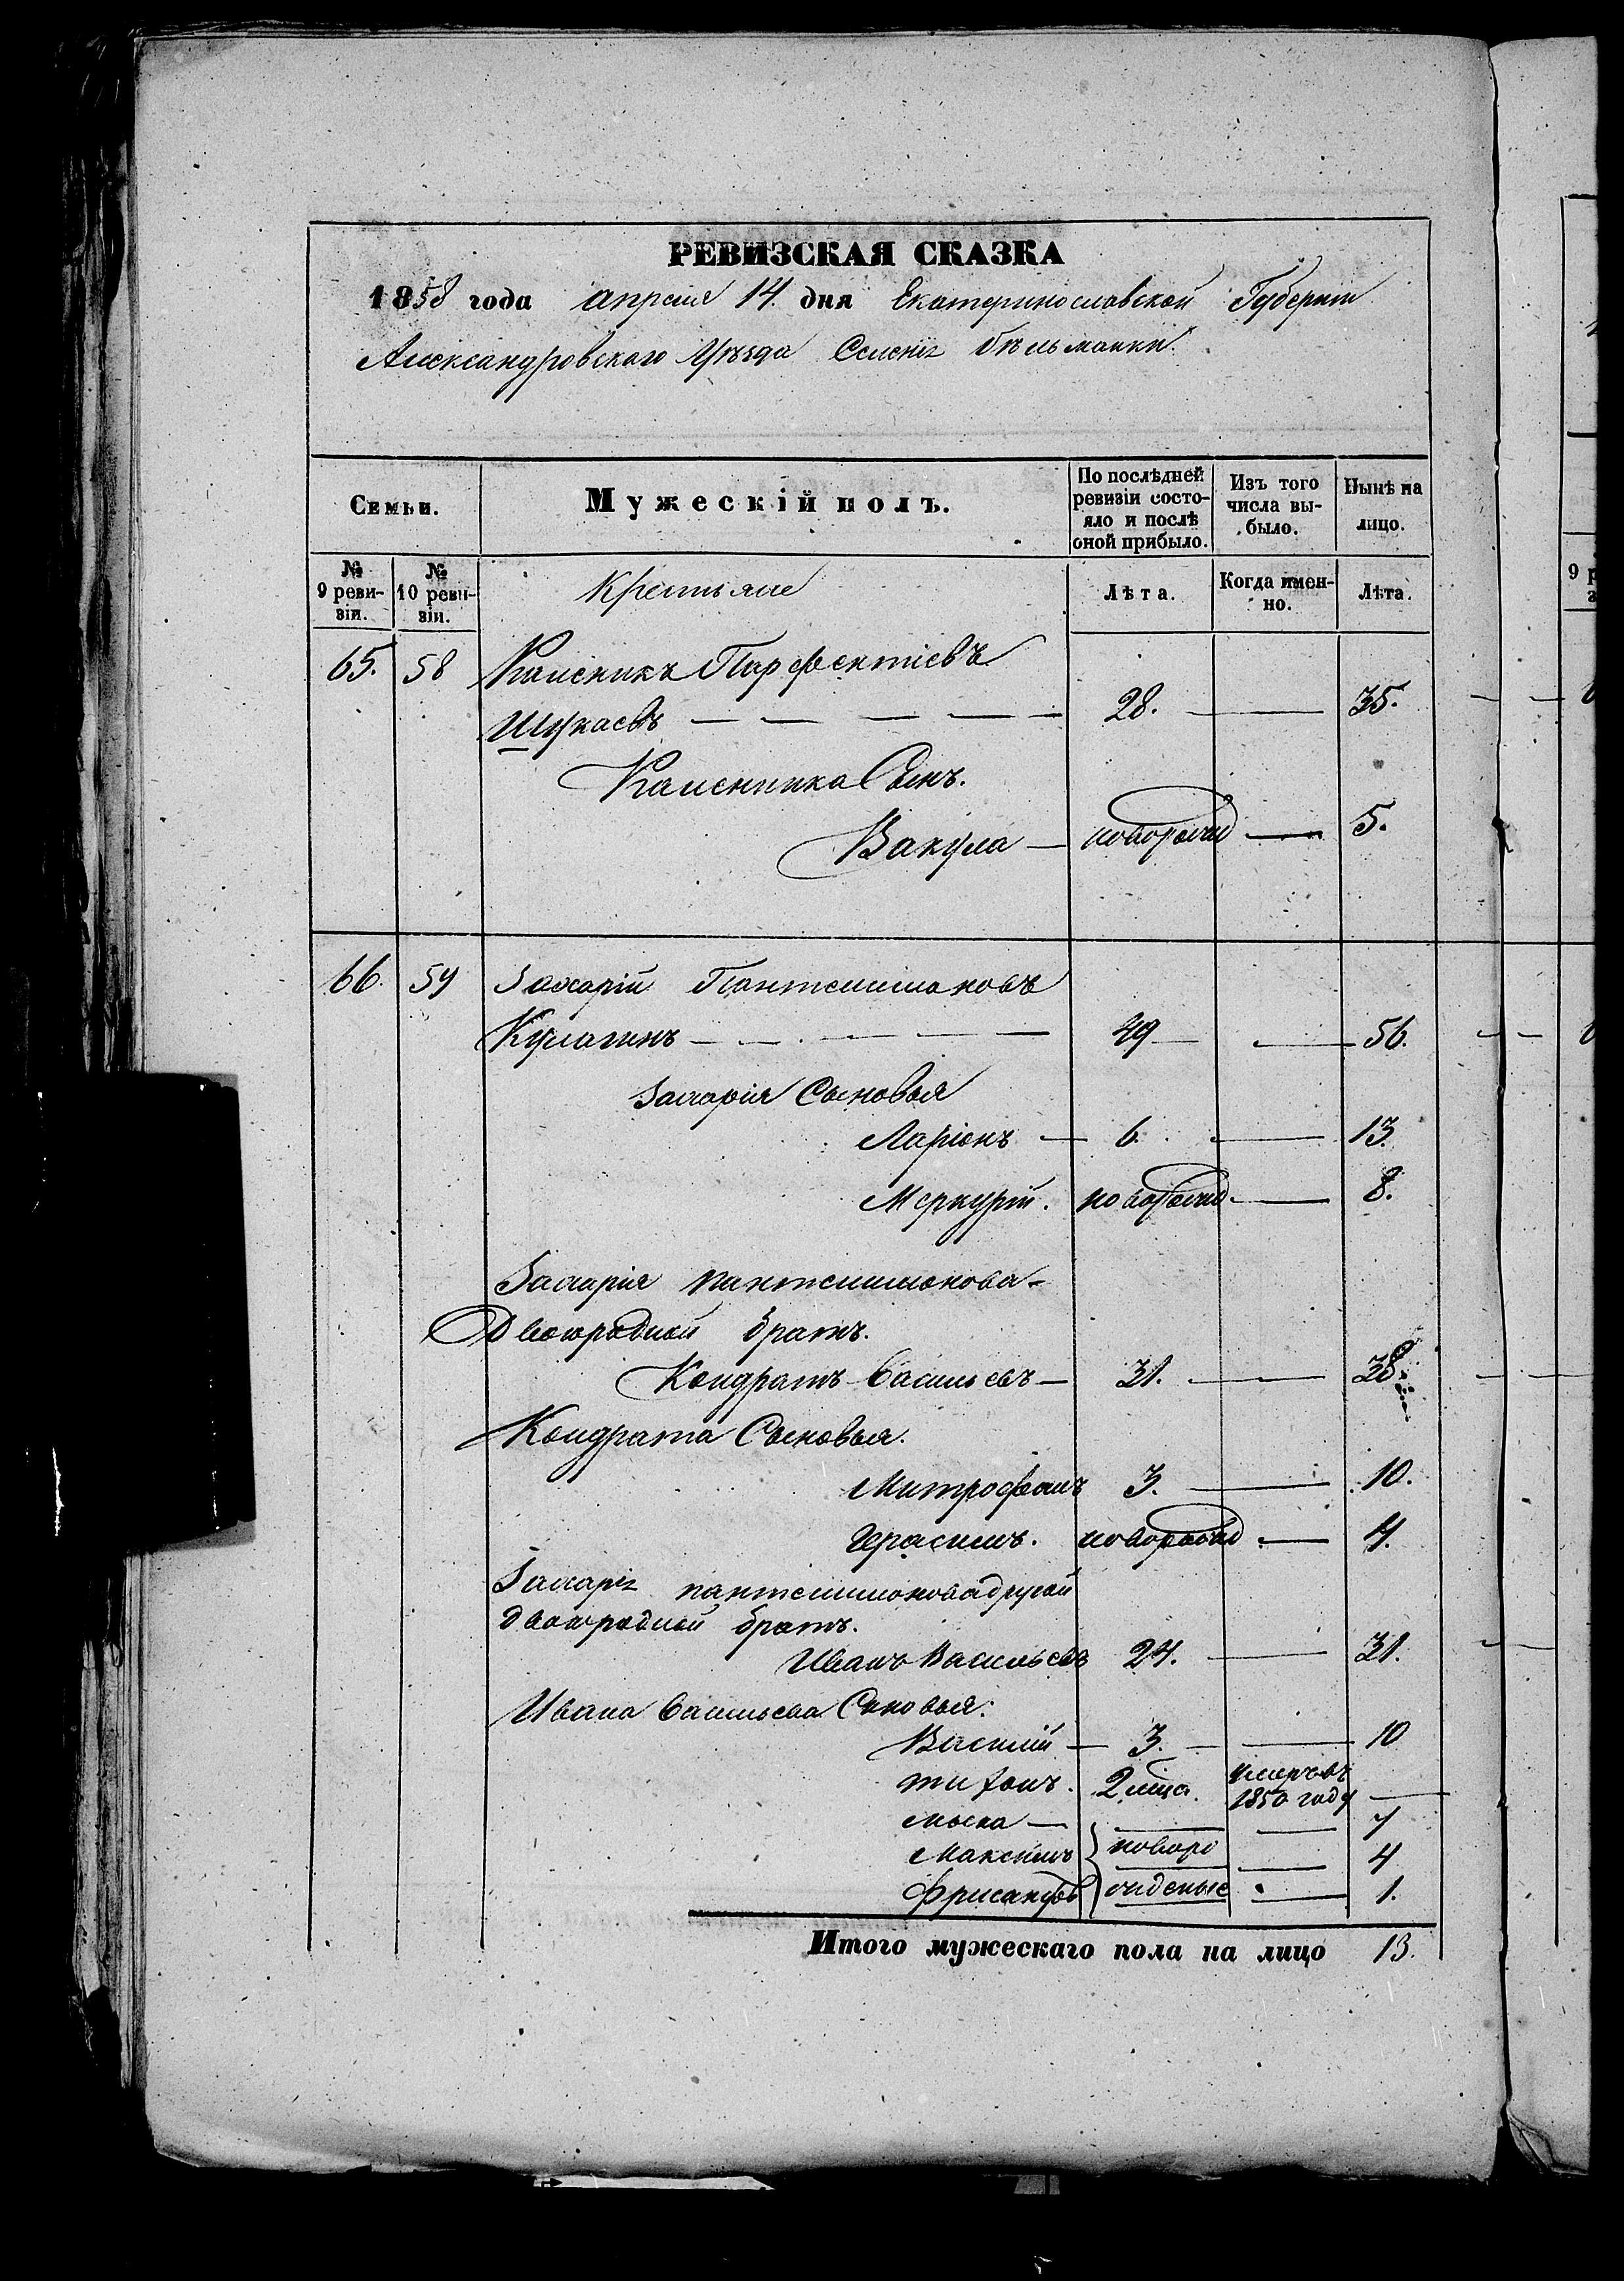 РЕВИЗСКАЯ СКАЗКА
1858 года апреля 14 дня Екатеринославской Губернии
Александровского Уѣзда Селенія Бѣльманки.
Семьи.
Мужескій полъ.
По послѣдней ревизіи состо-яло и послѣ оной прибыло.
Изъ того числа вы-было.
Нынѣ на лицо.
№ 9 реви-зіи.
№ 10 реви-зіи.
Крестьяне
Лѣта.
Когда имен-но.
Лѣта.
65. 58 Калсникъ Парфентіевъ
Шукаевъ 28. 35.
Калсника Сынъ.
Вакула новорожд 5.
66. 59 Захарій Пантелимоновъ
Кулагинъ 49 56.
Захарія Сыновья
Ларіонъ 6. 13.
Меркурій. новорожд 8.
Захарія пантелимонова
Двоюродной братъ.
Кондратъ Васильевъ 31. 38.
Кондрата Сыновья.
Митрофанъ 3. 10.
Герасимъ. новорожд 4.
Захарія пантелимонова другой
двоюродной братъ.
Иванъ Васильевъ 24. 31.
Ивана Васильева Сыновья:
Василій 3. 10
тихонъ. 2 мѣся. умеръ въ
1850 году
7
Максимъ новоро 4
жденые 1.
Итого мужескаго пола на лицо 13.
9 р